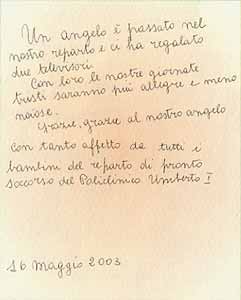 Un angelo è passato nel
nostro reparto e ci ha regalato
due televisori.
Con loro le nostre giornate
tristi saranno più allegre e meno
noiose.
Grazie, grazie al nostro angelo
con tanto affetto da tutti i
bambini del reparto di pronto
soccorso del Policlinico Umberto I
16 Maggio 2003